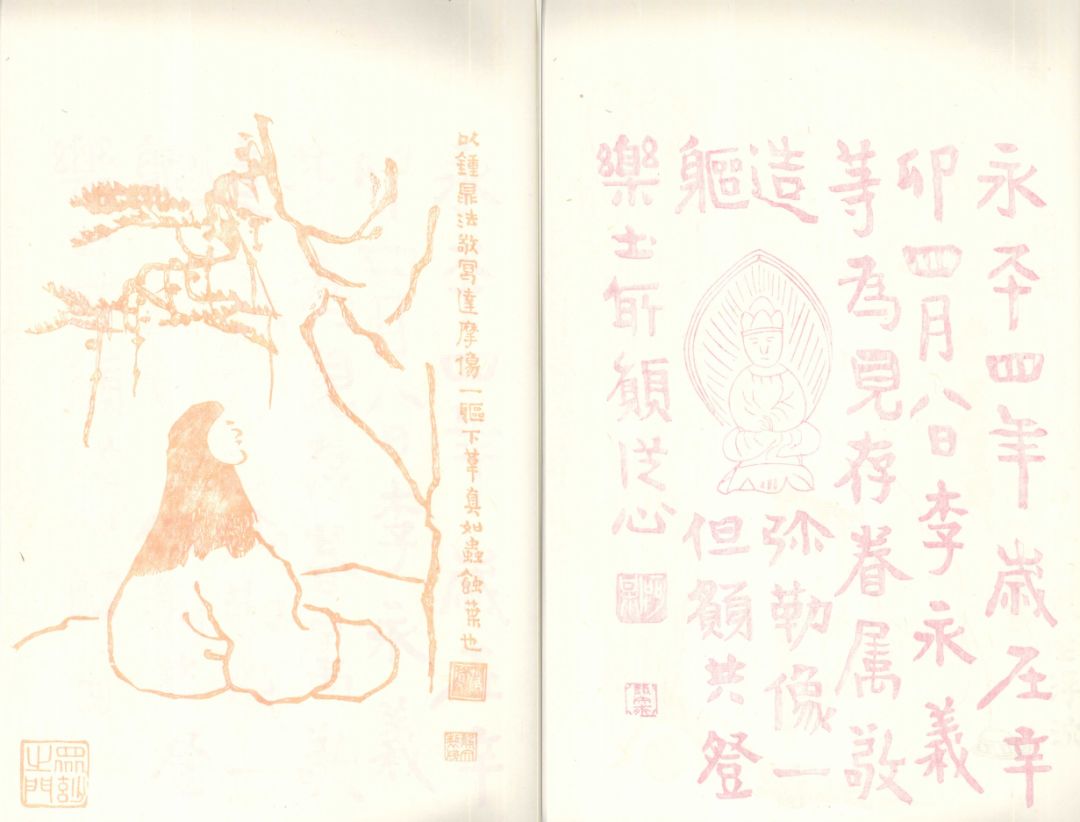 永平四年歲在辛
卯四月八日李永義
等為見存眷属敬
造弥勒像一
軀但願共登
樂土所願從心
以鍾鼎法敬寫達摩像一軀下筆真如蟲蝕葉也
眾妙之門